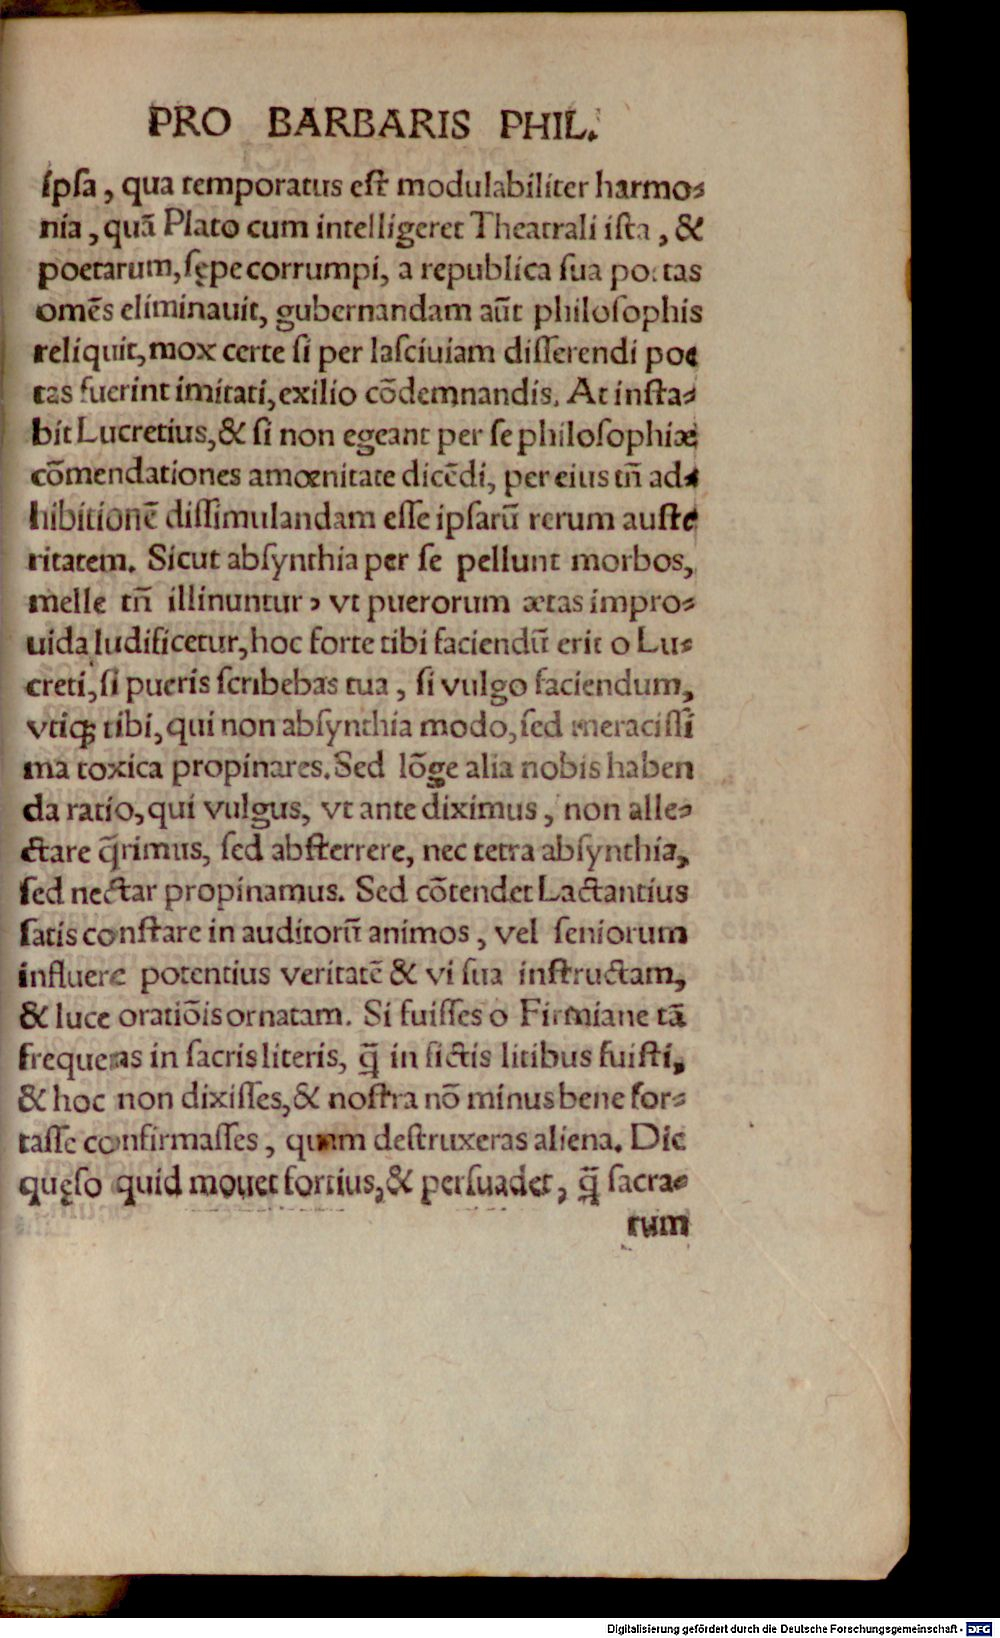 PRO BARBARIS PHIL.
ipſa, qua temporatus eſt modulabiliter harmo⸗
nia, quã Plato cum intelligeret Theatrali iſta, &
poetarum, ſępe corrumpi, a republica ſua poetas
omẽs eliminauit, gubernandam aũt philoſophis
reliquit, mox certe ſi per laſciuiam diſſerendi poe
tas fuerint imitati, exilio cõdemnandis. At inſta⸗
bit Lucretius, & ſi non egeant per ſe philoſophiæ
cõmendationes amœnitate dicẽdi, per eius tñ ad⸗
hibitionẽ diſſimulandam eſſe ipſarũ rerum auſte
ritatem. Sicut abſynthia per ſe pellunt morbos,
melle tñ illinuntur, vt puerorum ætas impro⸗
uida ludificetur, hoc forte tibi faciendũ erit o Lu⸗
creti, ſi pueris ſcribebas tua, ſi vulgo faciendum,
vtiqꝫ tibi, qui non abſynthia modo, ſed meraciſſi
ma toxica propinares. Sed lõge alia nobis haben
da ratio, qui vulgus, vt ante diximus, non alle⸗
ctare q̃rimus, ſed abſterrere, nec tetra abſynthia,
ſed nectar propinamus. Sed cõtendet Lactantius
ſatis conſtare in auditorũ animos, vel ſeniorum
influere potentius veritatẽ & vi ſua inſtructam,
& luce oratiõis ornatam. Si fuiſſes o Firmiane tã
frequens in ſacris literis, q̃ in fictis litibus fuiſti,
& hoc non dixiſſes, & noſtra nõ minus bene for⸗
taſſe confirmaſſes, quam deſtruxeras aliena. Dic
quęſo quid mouet fortius, & perſuadet, q̃ ſacra⸗
rum
Digitalisierung gefördert durch die Deutsche Forschungsgemeinschaft - DFG